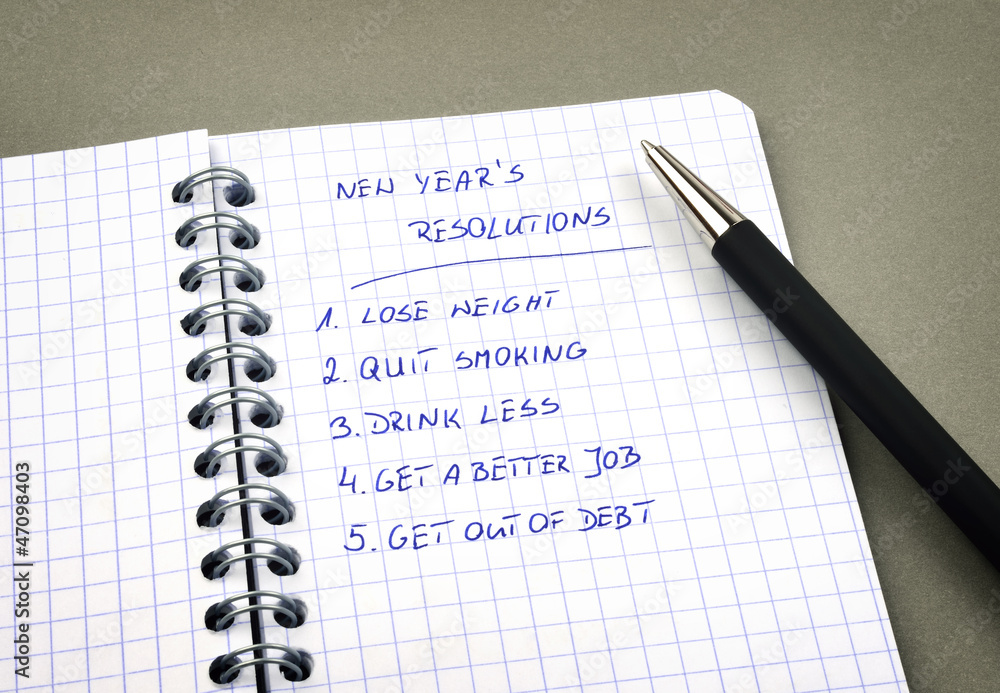 NEW YEAR'S
RESOLUTIONS
1. LOSE WEIGHT
2. QUIT SMOKING
3. DRINK LESS
4. GET A BETTER JOB
5. GET OUT OF DEBT
Adobe Stock | #47098403